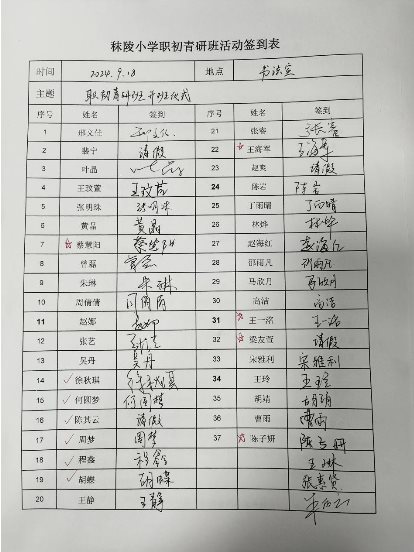 秣陵小学职初青研班活动签到表
时间 2024.9.18 地点 书法室
主题 职初青研班开班仪式
序号 姓名 签到 序号 姓名 签到
1 邢文佳 21 张睿 张睿
2 裴宁 请假 22 王海军 王海军
3 叶晶 叶晶 23 赵爽 请假
4 王玟萱 王玟萱 24 陈岩 陈岩
5 张明珠 张明珠 25 丁雨晴 丁雨晴
6 黄晶 黄晶 26 林烨 林烨
7 蔡慧阳 蔡慧阳 27 赵海红
8 曾磊 曾磊 28 邵雨凡 邵雨凡
9 朱琳 朱琳 29 马欣月 马欣月
10 周倩倩 周倩倩 30 高洁 高洁
11 赵娜 赵娜 31 王一洺 王一洺
12 张艺 32 梁友萱 请假
13 吴丹 吴丹 33 宋雅利 宋雅利
14 徐秋琪 34 王玲 王玲
15 何圆梦 何圆梦 35 胡婧 胡婧
16 陈其云 请假 36 曹雨 曹雨
17 周梦 周梦 37 陈子妍 陈子妍
18 程鑫 程鑫 王琳
19 胡蝶 胡蝶
20 王静 王静